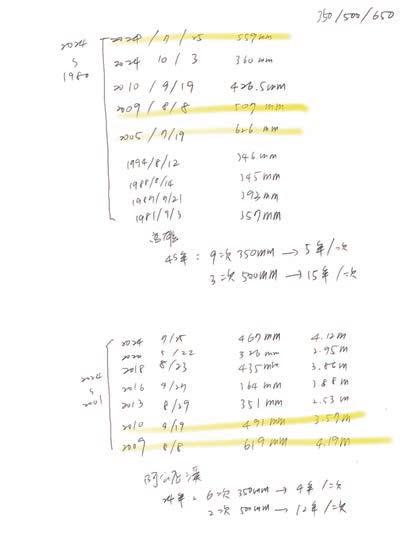 350/500/650
2024
S
1980
2024 / 7 / 25 559mm
2024 10 / 3 360 mm
2010 / 9/19 426.5mm
2009 / 8/8 507 mm
2005 / 7/19 626 mm
1994/8/12 346mm
1988/8/14 345mm
1981/9/3 357mm
高雄
45年 : 9次 350mm → 5年/次
3次 500mm → 15年/次
2024
S
2001
2024 7/25 467mm 4.12m
2020 5/22 326mm 2.95m
2018 8/23 435mm 3.86m
2016 9/27 364mm 3.88m
2013 8/29 351mm 2.53m
2010 9/19 491mm 3.57m
2009 8/8 619mm 4.19m
阿公店溪
24年 : 6次 350mm → 4年/次
2次 500mm → 12年/次